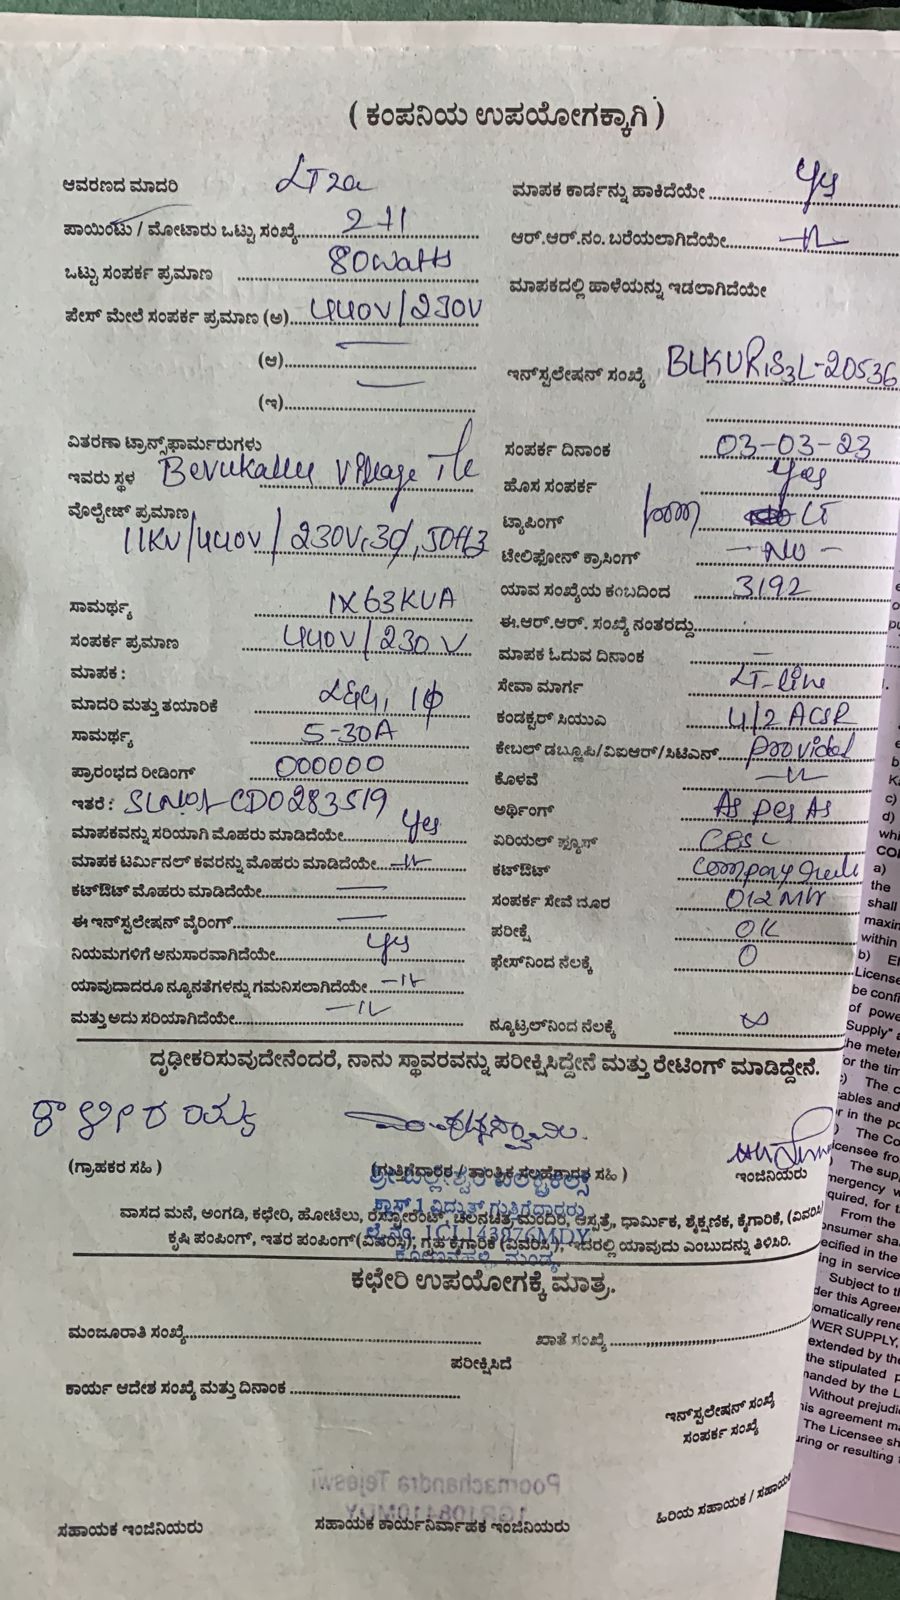 ( ಕಂಪನಿಯ ಉಪಯೋಗಕ್ಕಾಗಿ )
ಆವರಣದ ಮಾದರಿ LT2a
ಪಾಯಿಂಟು / ಮೋಟಾರು ಒಟ್ಟು ಸಂಖ್ಯೆ 2+1
ಒಟ್ಟು ಸಂಪರ್ಕ ಪ್ರಮಾಣ 80watts
ಪೇಸ್ ಮೇಲೆ ಸಂಪರ್ಕ ಪ್ರಮಾಣ (ಅ) 440V/230V
(ಆ)
(ಇ)
ವಿತರಣಾ ಟ್ರಾನ್ಸ್‌ಫಾರ್ಮರುಗಳು
ಇವರು ಸ್ಥಳ Bevukallu Village
ವೊಲ್ಟೇಜ್ ಪ್ರಮಾಣ
11KV/440V/230V,3ϕ,50Hz
ಸಾಮರ್ಥ್ಯ 1X63KVA
ಸಂಪರ್ಕ ಪ್ರಮಾಣ 440V/230V
ಮಾಪಕ :
ಮಾದರಿ ಮತ್ತು ತಯಾರಿಕೆ L&G, 1ϕ
ಸಾಮರ್ಥ್ಯ 5-30A
ಪ್ರಾರಂಭದ ರೀಡಿಂಗ್ 000000
ಇತರೆ : SLNO:- CD0283519
ಮಾಪಕವನ್ನು ಸರಿಯಾಗಿ ಮೊಹರು ಮಾಡಿದೆಯೇ Yes
ಮಾಪಕ ಟರ್ಮಿನಲ್ ಕವರನ್ನು ಮೊಹರು ಮಾಡಿದೆಯೇ -11-
ಕಟ್‌ಔಟ್ ಮೊಹರು ಮಾಡಿದೆಯೇ
ಈ ಇನ್‌ಸ್ಟಲೇಷನ್ ವೈರಿಂಗ್
ನಿಯಮಗಳಿಗೆ ಅನುಸಾರವಾಗಿದೆಯೇ Yes
ಯಾವುದಾದರೂ ನ್ಯೂನತೆಗಳನ್ನು ಗಮನಿಸಲಾಗಿದೆಯೇ -11-
ಮತ್ತು ಅದು ಸರಿಯಾಗಿದೆಯೇ -11-
ಮಾಪಕ ಕಾರ್ಡನ್ನು ಹಾಕಿದೆಯೇ Yes
ಆರ್.ಆರ್.ನಂ. ಬರೆಯಲಾಗಿದೆಯೇ -11-
ಮಾಪಕದಲ್ಲಿ ಹಾಳೆಯನ್ನು ಇಡಲಾಗಿದೆಯೇ
ಇನ್‌ಸ್ಟಲೇಷನ್ ಸಂಖ್ಯೆ BLKUR1S3L-20536
ಸಂಪರ್ಕ ದಿನಾಂಕ 03-03-23
ಹೊಸ ಸಂಪರ್ಕ Yes
ಟ್ಯಾಪಿಂಗ್ from LT
ಟೇಲಿಫೋನ್ ಕ್ರಾಸಿಂಗ್ - No -
ಯಾವ ಸಂಖ್ಯೆಯ ಕಂಬದಿಂದ 3192
ಈ.ಆರ್.ಆರ್. ಸಂಖ್ಯೆ ನಂತರದ್ದು
ಮಾಪಕ ಓದುವ ದಿನಾಂಕ -
ಸೇವಾ ಮಾರ್ಗ LT-line
ಕಂಡಕ್ಟರ್ ಸಿಯುವಿ 4/2 ACSR
ಕೇಬಲ್ ಡಬ್ಲೂಪಿ/ವಿಐಆರ್/ಸಿಟಿಎನ್ Provided
ಕೊಳವೆ -11-
ಅರ್ಥಿಂಗ್ As per AS
ಏರಿಯಲ್ ಫ್ಯೂಸ್ CESC
ಕಟ್‌ಔಟ್ Company
ಸಂಪರ್ಕ ಸೇವೆ ದೂರ 012 Mtr
ಪರೀಕ್ಷೆ OK
ಫೇಸ್‌ನಿಂದ ನೆಲಕ್ಕೆ 0
ನ್ಯೂಟ್ರಲ್‌ನಿಂದ ನೆಲಕ್ಕೆ ∞
ದೃಢೀಕರಿಸುವುದೇನೆಂದರೆ, ನಾನು ಸ್ಥಾವರವನ್ನು ಪರೀಕ್ಷಿಸಿದ್ದೇನೆ ಮತ್ತು ರೇಟಿಂಗ್ ಮಾಡಿದ್ದೇನೆ.
ಕಾಳೀರಯ್ಯ
(ಗ್ರಾಹಕರ ಸಹಿ )
(ಗುತ್ತಿಗೆದಾರರ / ತಾಂತ್ರಿಕ ಸಲಹೆಗಾರಕ ಸಹಿ )
ಇಂಜಿನಿಯರು
ವಾಸದ ಮನೆ, ಅಂಗಡಿ, ಕಛೇರಿ, ಹೋಟೆಲು, ರೆಸ್ಟೋರೆಂಟ್, ಚಲನಚಿತ್ರ ಮಂದಿರ, ಆಸ್ಪತ್ರೆ, ಧಾರ್ಮಿಕ, ಶೈಕ್ಷಣಿಕ, ಕೈಗಾರಿಕೆ, (ವಿವರಿಸಿ)
ಕೃಷಿ ಪಂಪಿಂಗ್, ಇತರ ಪಂಪಿಂಗ್ (ವಿವರಿಸಿ), ಗೃಹ ಕೈಗಾರಿಕೆ (ವಿವರಿಸಿ), ಇದರಲ್ಲಿ ಯಾವುದು ಎಂಬುದನ್ನು ತಿಳಿಸಿರಿ.
ಕಛೇರಿ ಉಪಯೋಗಕ್ಕೆ ಮಾತ್ರ.
ಮಂಜೂರಾತಿ ಸಂಖ್ಯೆ
ಖಾತೆ ಸಂಖ್ಯೆ
ಪರೀಕ್ಷಿಸಿದೆ
ಕಾರ್ಯ ಆದೇಶ ಸಂಖ್ಯೆ ಮತ್ತು ದಿನಾಂಕ
ಇನ್‌ಸ್ಟಲೇಷನ್ ಸಂಖ್ಯೆ
ಸಂಪರ್ಕ ಸಂಖ್ಯೆ
ಸಹಾಯಕ ಇಂಜಿನಿಯರು
ಸಹಾಯಕ ಕಾರ್ಯನಿರ್ವಾಹಕ ಇಂಜಿನಿಯರು
ಹಿರಿಯ ಸಹಾಯಕ / ಸಹಾಯ